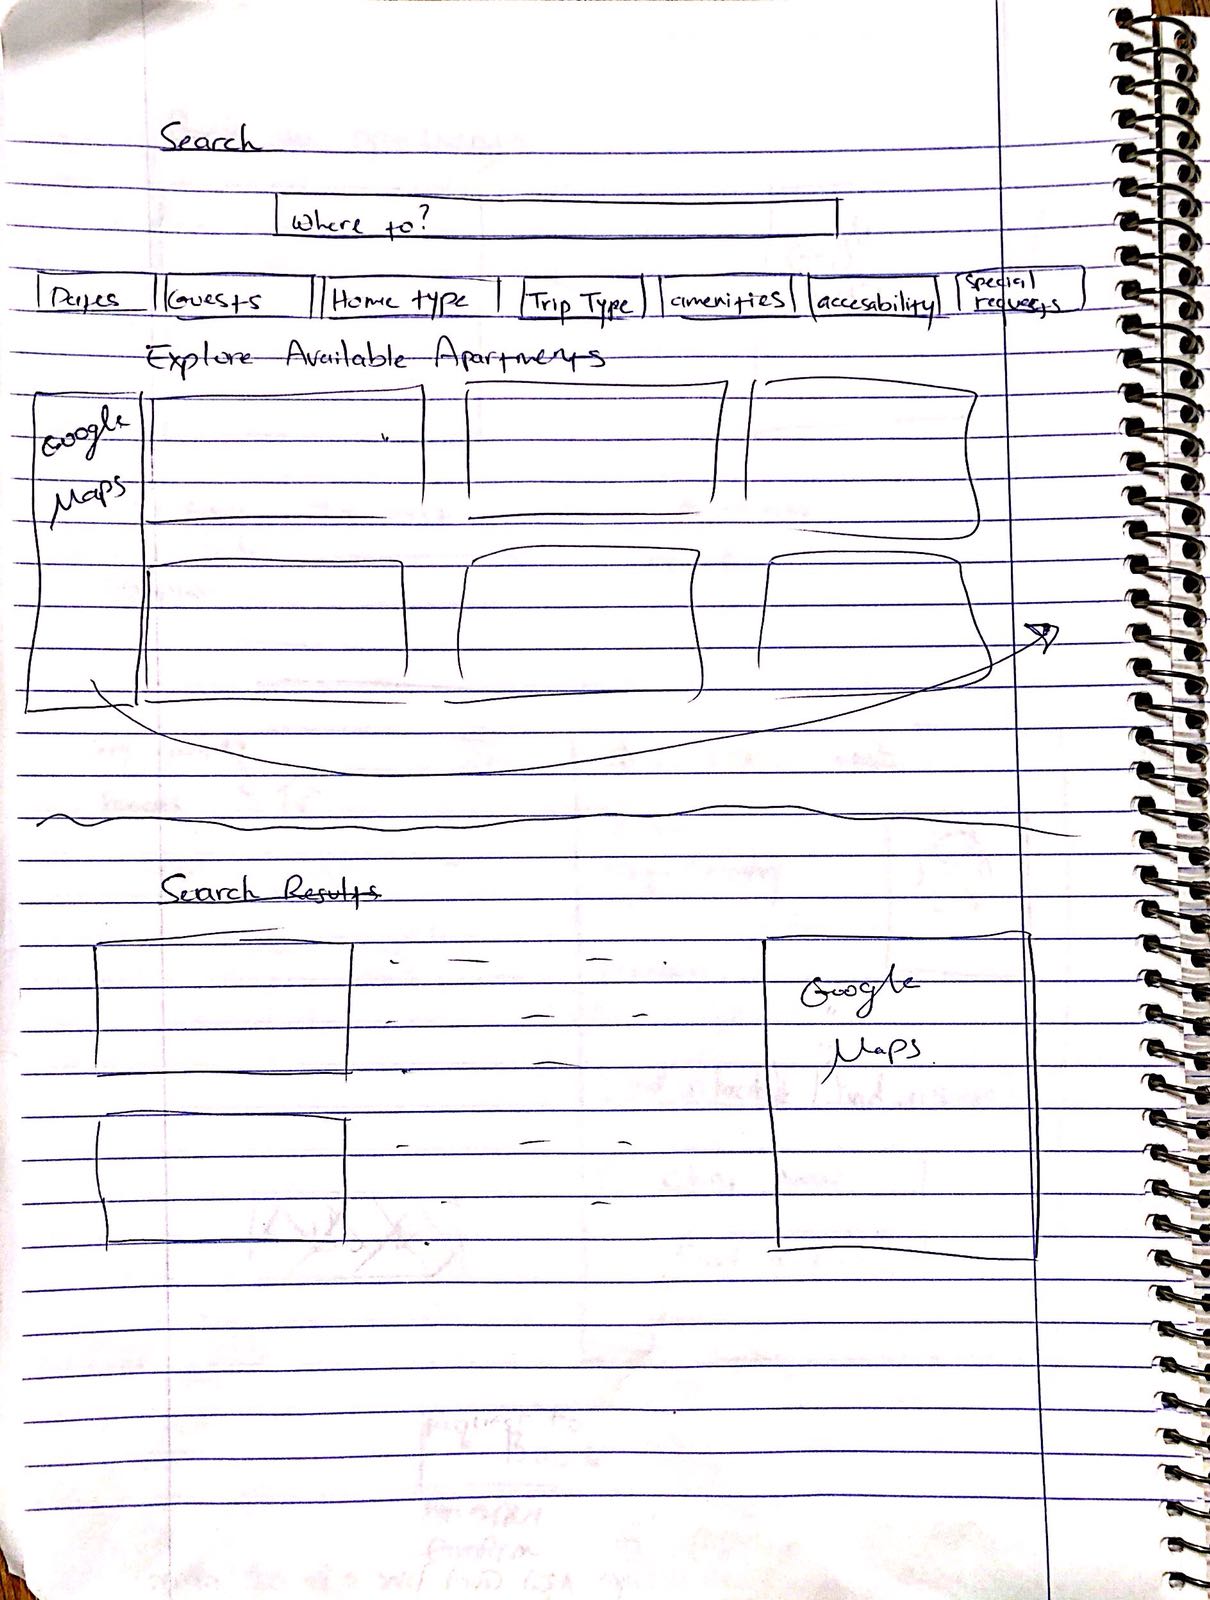 Search
Where to?
Dates Guests Home type Trip Type amenities accesability special requests
Explore Available Apartments
Google
Maps
Search Results
Google
Maps.